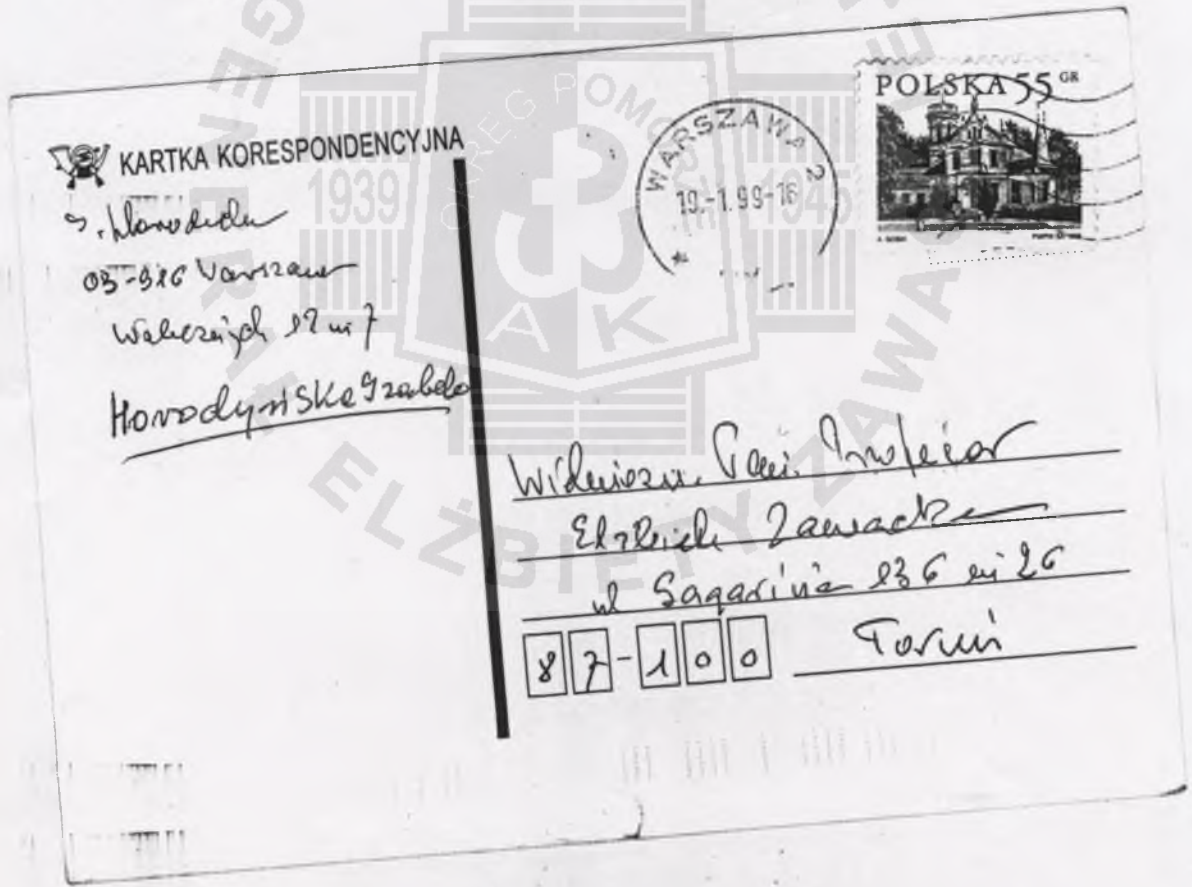 KARTKA KORESPONDENCYJNA
03-916 Warszawa
Walecznych 12 m 7
Horodyńska Izabela
WARSZAWA 2
19.-1.99-16
POLSKA 55 GR
Pani Profesor
Elżbieta Zawacka
ul Gagarina 136 m 26
87-100 Toruń
1939
1945
OKRĘG POMORSKI
AK
ELŻBIETY ZAWAC